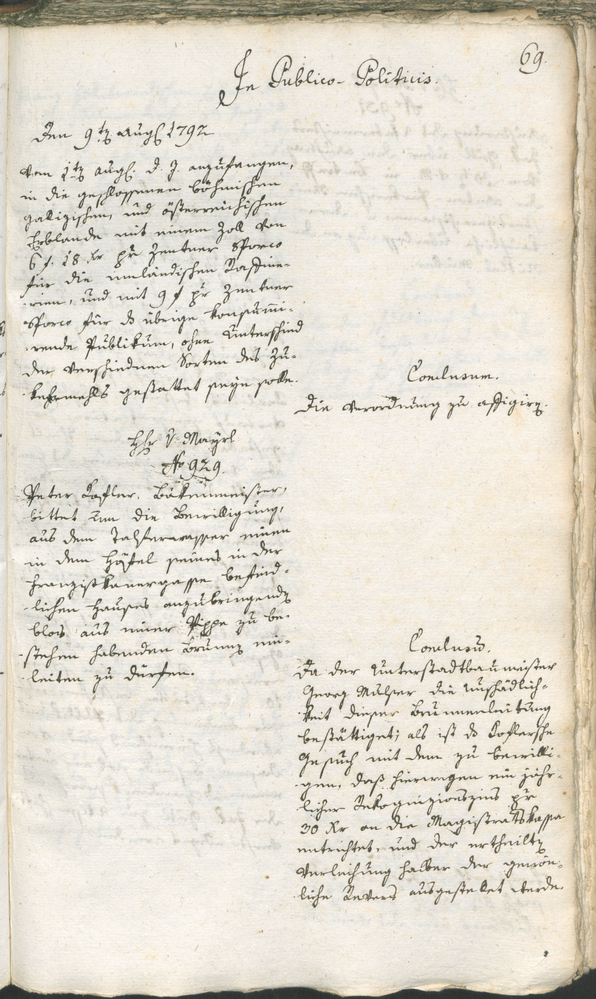 69.
In Publico-Politicis.
Den 9tn Augl 1792
vom 1tn Augl. d. J. anzufangen,
in die geschlossenen böhmischen
galizischen, und österreichischen
Erblande mit einem Zoll von
6 f. 18 Kr pr Zentner Sporco
für die innländischen Raffine-
rien, und mit 9 f pr Zentner
Sporco für das übrige konsummi-
rende Publikum, ohne Unterschied
der verschiednen Sorten des Zu-
kermehls gestattet seyn solle.
Conclusum.
Die Verordnung zu affigirn.
Hr v. Mayrl
No 929.
Peter Kofler, Bäkenmeister,
bittet um die Bewilligung,
aus dem Talferwasser einen
in dem Höfel seines in der
Franziskanergasse befind-
lichen Hauses anzubringenden
blos aus einer Pippe zu be-
stehen habenden Brunn ein-
leiten zu dürfen.
Conclusum.
Da der Unterstadtbaumeister
Georg die Unschädlich-
keit dieser Brunnenleitung
bestättiget; als ist das Koflersche
Gesuch mit dem zu bewilli-
gen, daß hierwegen ein jähr-
licher Rekognizionszins pr
30 Kr an die Magistratskassa
entrichtet, und der ertheiltn
Verleihung halber der gewön-
liche Revers ausgestellet werde.